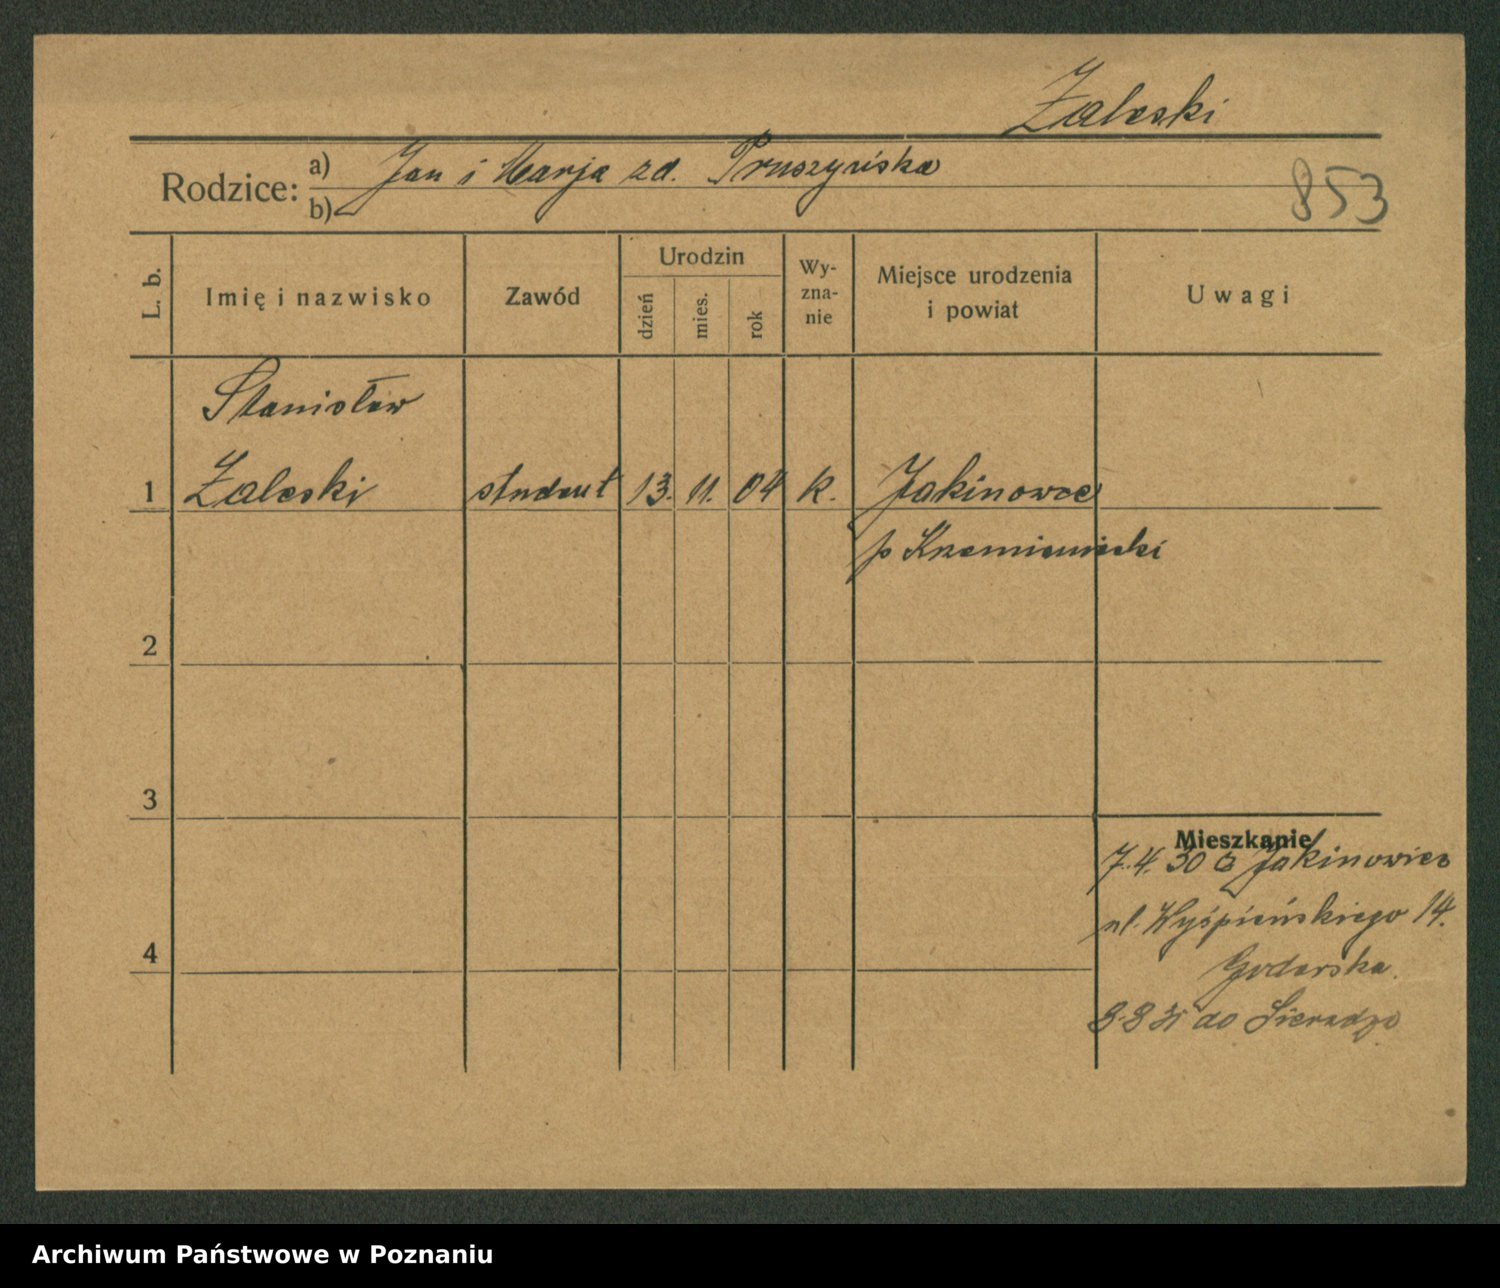 Zaleski
Rodzice: a) Jan i Marja zd. Pruszyńska
b)
853
L. b. Imię i nazwisko Zawód Urodzin dzień mies. rok Wy-zna-nie Miejsce urodzenia i powiat Uwagi
Stanisław
1 Zaleski student 13. 11. 04 k. Jakinowce
p Krzemieniecki
2
3
Mieszkanie
7.4.30 z Jakinowiec
ul. Wyśpieńskiego 14.
4
8.8.31 do Sieradza
Archiwum Państwowe w Poznaniu